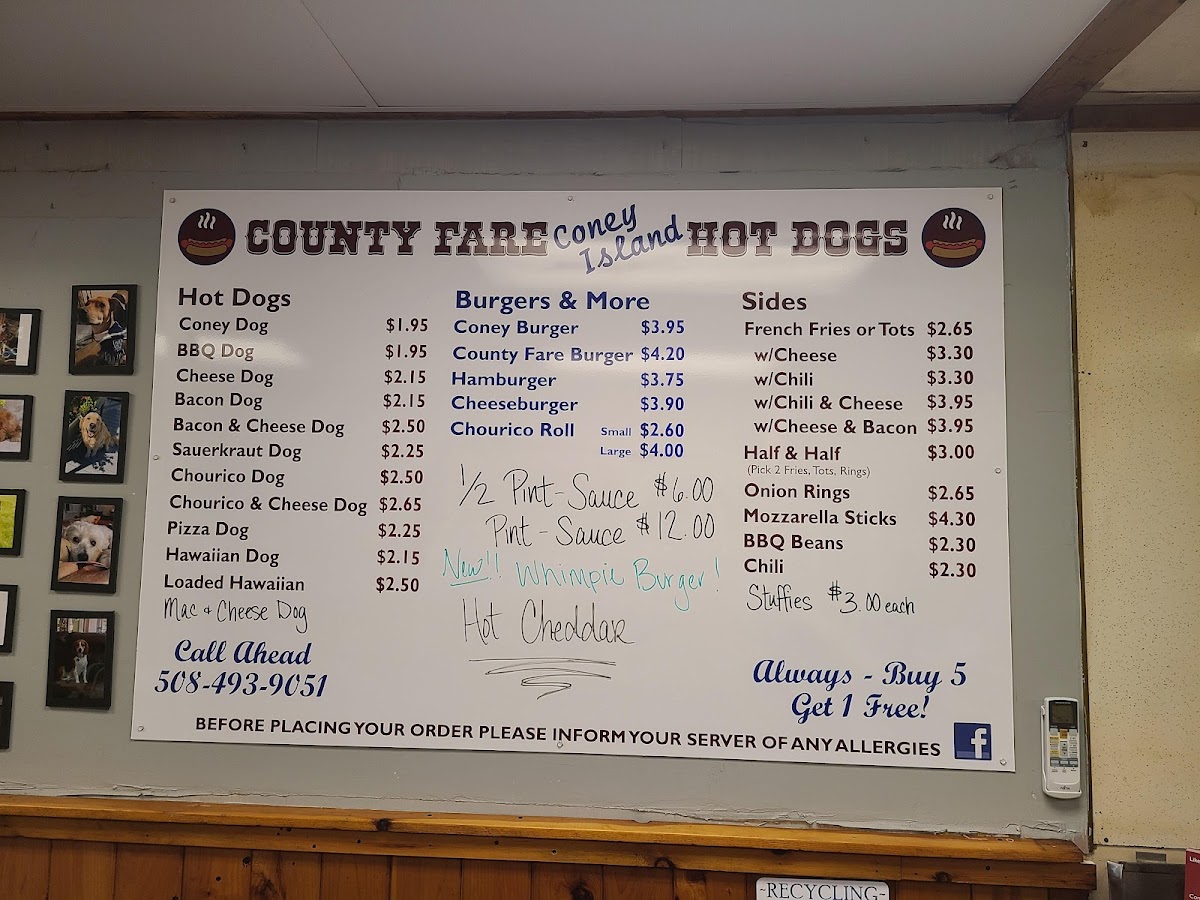 COUNTY FARE Coney Island HOT DOGS
Hot Dogs
Coney Dog $1.95
BBQ Dog $1.95
Cheese Dog $2.15
Bacon Dog $2.15
Bacon & Cheese Dog $2.50
Sauerkraut Dog $2.25
Chourico Dog $2.50
Chourico & Cheese Dog $2.65
Pizza Dog $2.25
Hawaiian Dog $2.15
Loaded Hawaiian $2.50
Mac & Cheese Dog
Call Ahead
508-493-9051
Burgers & More
Coney Burger $3.95
County Fare Burger $4.20
Hamburger $3.75
Cheeseburger $3.90
Chourico Roll Small $2.60
Large $4.00
1/2 Pint-Sauce $6.00
Pint-Sauce $12.00
New!! Whimpie Burger!
Hot Cheddar
Sides
French Fries or Tots $2.65
w/Cheese $3.30
w/Chili $3.30
w/Chili & Cheese $3.95
w/Cheese & Bacon $3.95
Half & Half $3.00
(Pick 2 Fries, Tots, Rings)
Onion Rings $2.65
Mozzarella Sticks $4.30
BBQ Beans $2.30
Chili $2.30
Stuffies $3.00 each
Always - Buy 5
Get 1 Free!
BEFORE PLACING YOUR ORDER PLEASE INFORM YOUR SERVER OF ANY ALLERGIES
f
-RECYCLING-